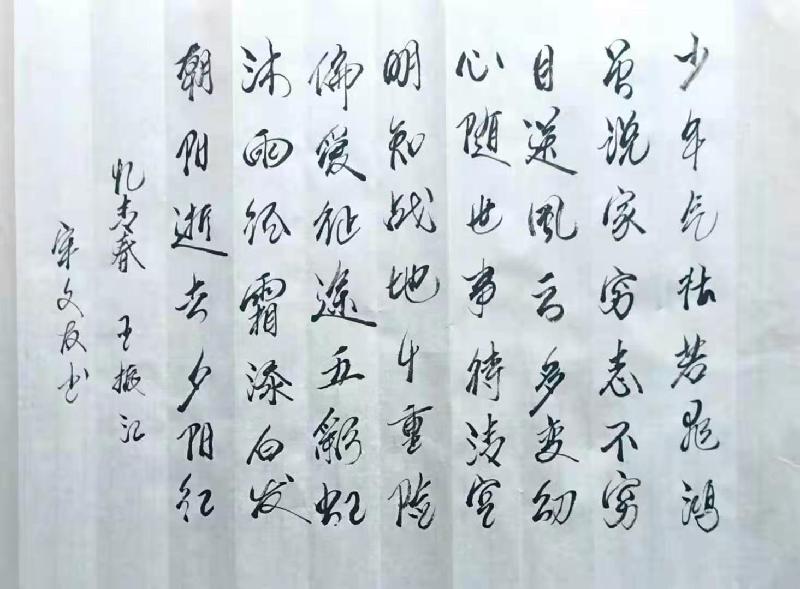 少年气若鸿
曾说家穷志不穷
目送风云多变幻
心随世事待凌空
明知战地千重险
偏爱征途五彩虹
沐雨经霜添白发
朝阳逝去夕阳红
忆青春 王振江
宋文友书